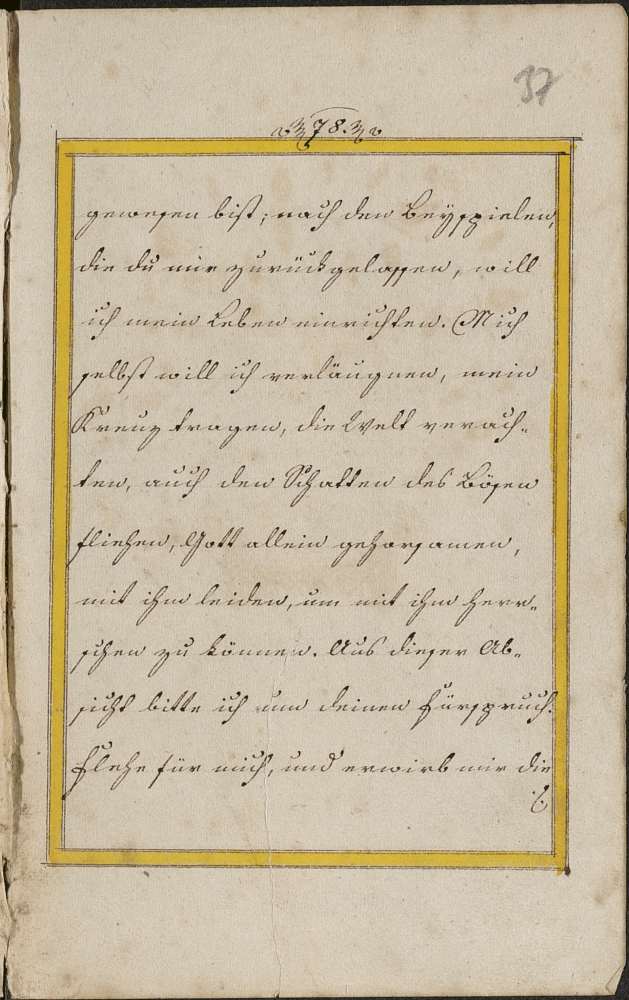 37
78.
gewesen bist; nach den Beyspielen,
die du mir zurückgelassen, will
ich mein Leben einrichten. Mich
selbst will ich verläugnen, mein
Kreuz tragen, die Welt verach-
ten, auch den Schatten des Bösen
fliehen, Gott allein gehorsamen,
mit ihm leiden, um mit ihm herr-
schen zu können. Aus dieser Ab-
sicht bitte ich um deinen Fürspruch.
Flehe für mich, und erwirb mir die